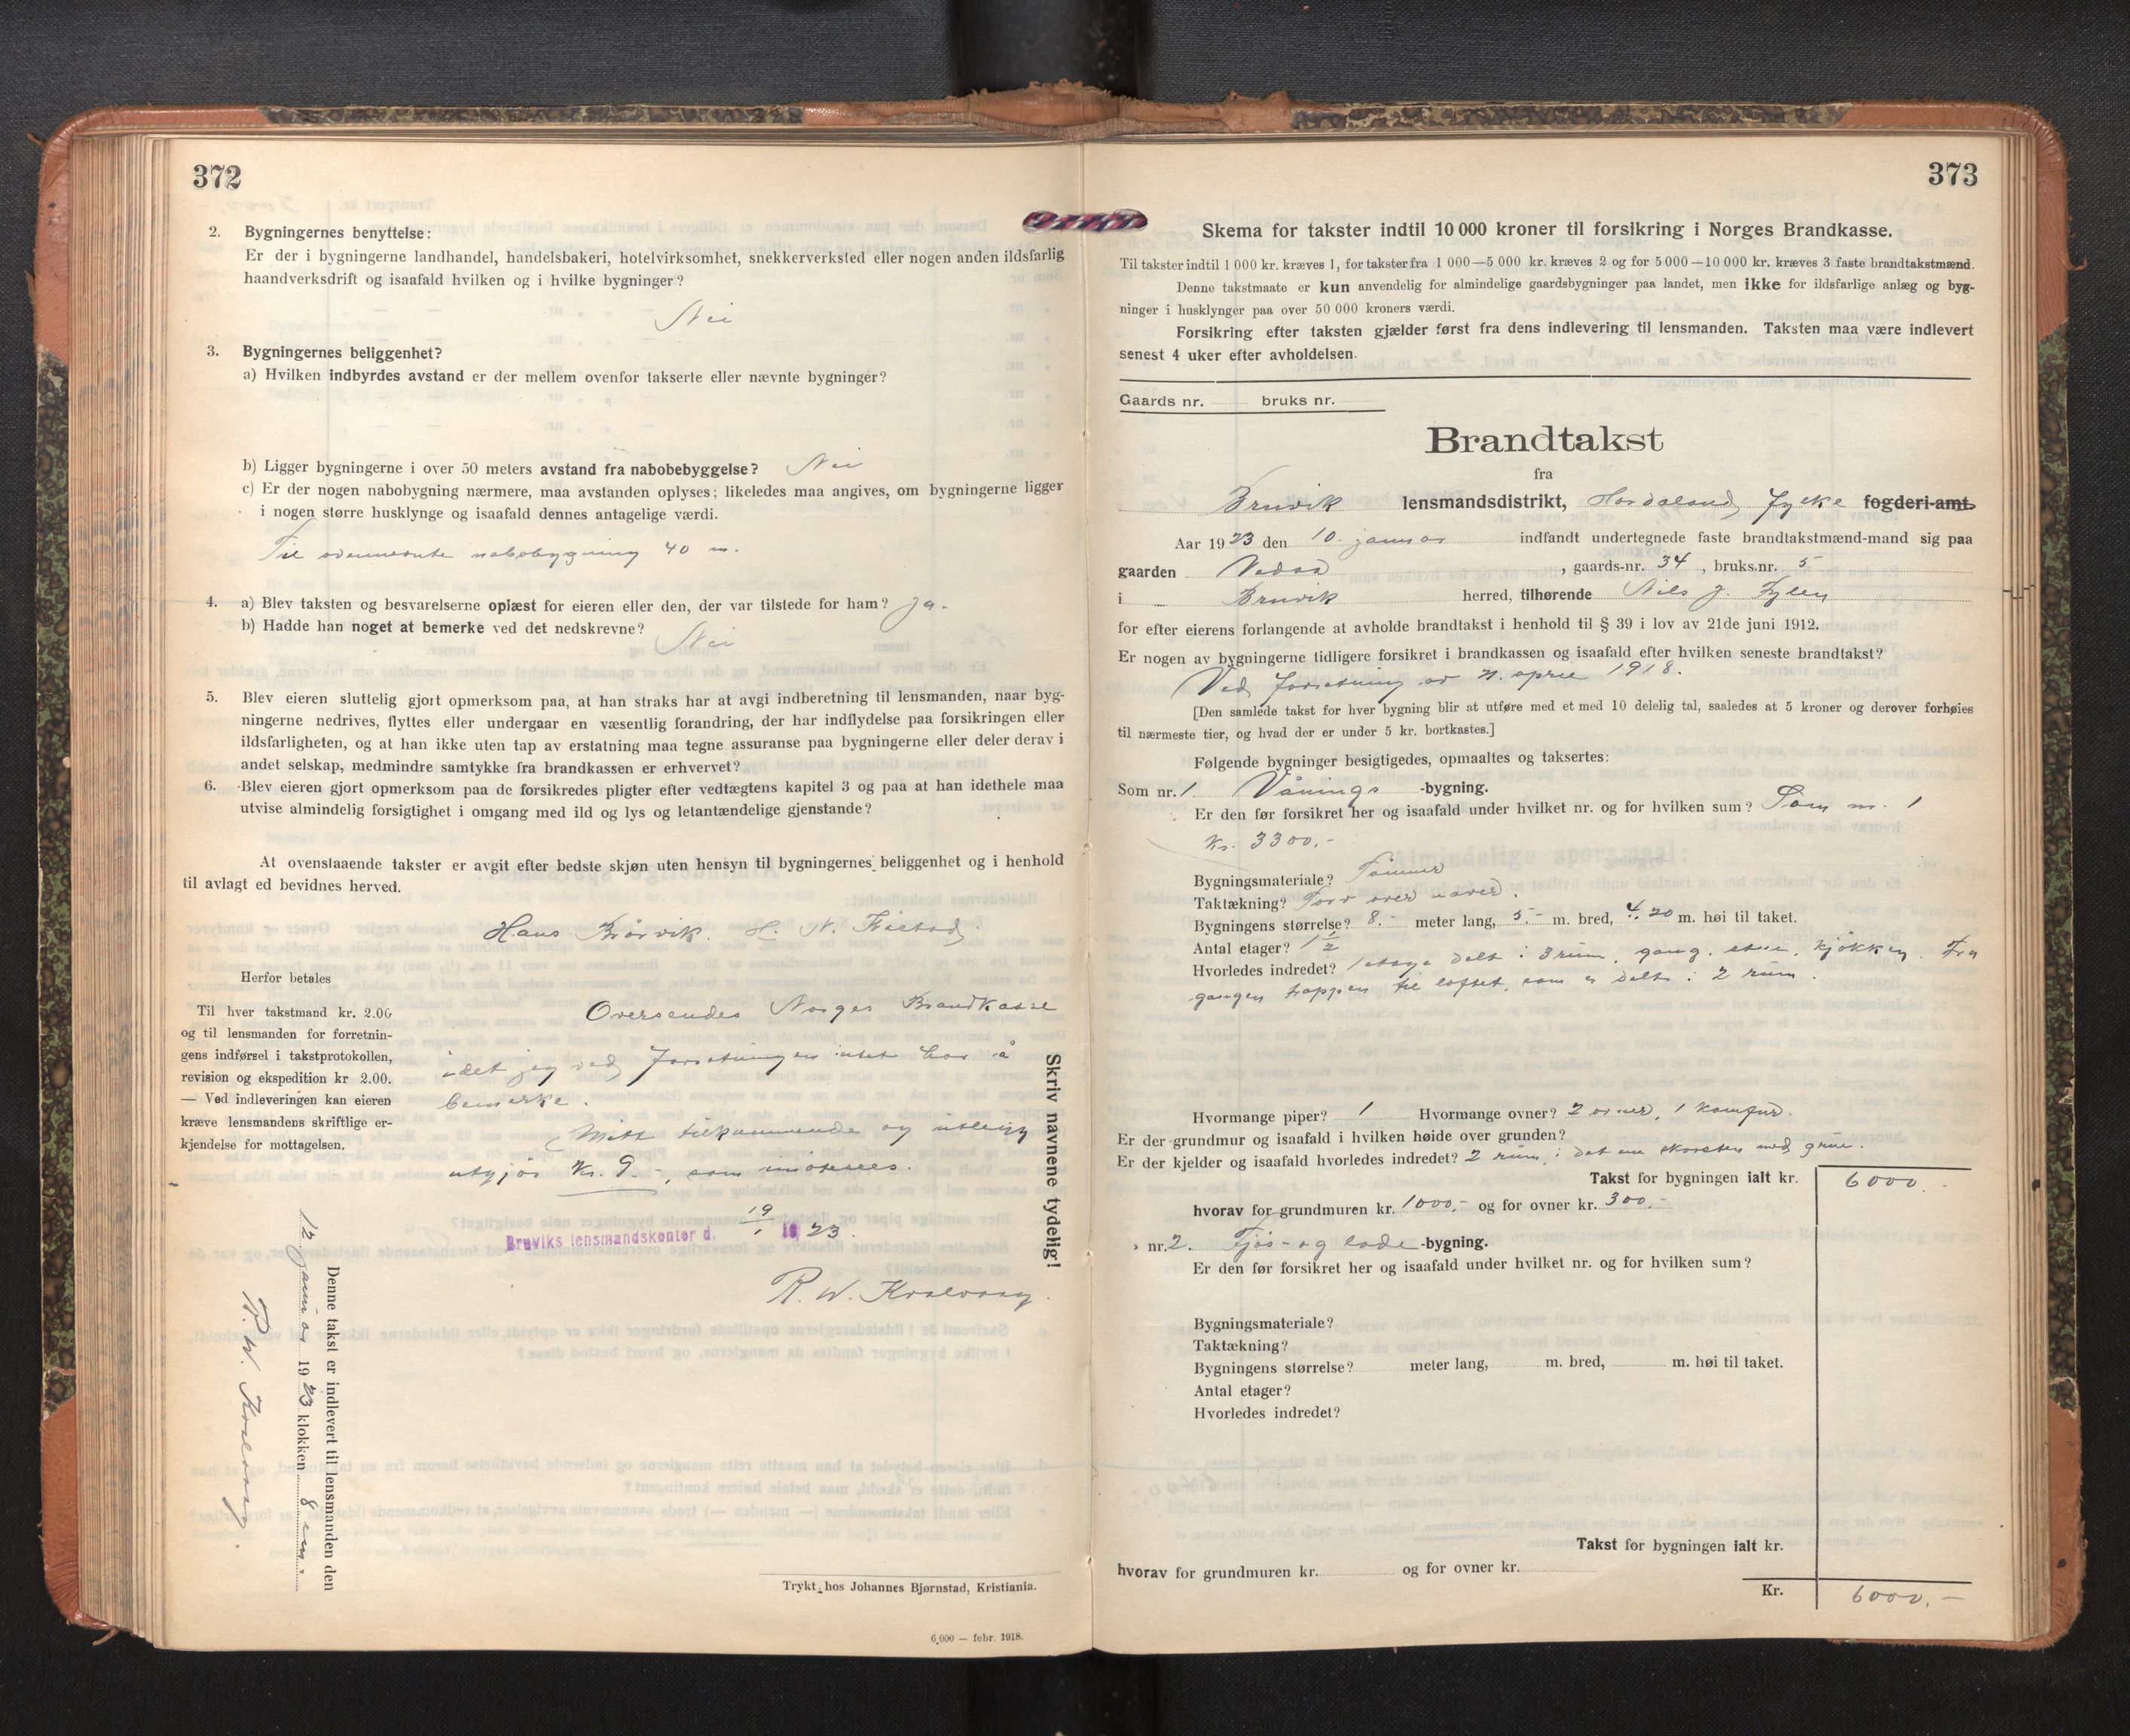 372
2. Bygningernes benyttelse:
Er der i bygningerne landhandel, handelsbakeri, hotelvirksomhet, snekkerverksted eller nogen anden ildsfarlig
haandverksdrift og isaafald hvilken og i hvilke bygninger?
Nei
3. Bygningernes beliggenhet?
a) Hvilken indbyrdes avstand er der mellem ovenfor takserte eller nævnte bygninger?
b) Ligger bygningerne i over 50 meters avstand fra nabobebyggelse? Nei
c) Er der nogen nabobygning nærmere, maa avstanden oplyses; likeledes maa angives, om bygningerne ligger
i nogen større husklynge og isaafald dennes antagelige værdi.
Til ovennevnte nabobygning 40 m.
4. a) Blev taksten og besvarelserne oplæst for eieren eller den, der var tilstede for ham? Ja.
b) Hadde han noget at bemerke ved det nedskrevne? Nei
5. Blev eieren sluttelig gjort opmerksom paa, at han straks har at avgi indberetning til lensmanden, naar byg-
ningerne nedrives, flyttes eller undergaar en væsentlig forandring, der har indflydelse paa forsikringen eller
ildsfarligheten, og at han ikke uten tap av erstatning maa tegne assuranse paa bygningerne eller deler derav i
andet selskap, medmindre samtykke fra brandkassen er erhvervet?
6. Blev eieren gjort opmerksom paa de forsikredes pligter efter vedtægtens kapitel 3 og paa at han idethele maa
utvise almindelig forsigtighet i omgang med ild og lys og letantændelige gjenstande?
At ovenstaaende takster er avgit efter bedste skjøn uten hensyn til bygningernes beliggenhet og i henhold
til avlagt ed bevidnes herved.
Hans H. N.
Herfor betales
Til hver takstmand kr. 2.00
og til lensmanden for forretnin-
gens indførsel i takstprotokollen,
revision og ekspedition kr 2.00.
— Ved indleveringen kan eieren
kræve lensmandens skriftlige er-
kjendelse for mottagelsen.
Oversendes Norges Brandkasse
idet jeg ved forretningen intet har å
bemerke.
Mitt tilkommende og utlegg
utgjør kr. 9.-, som
Bruviks lensmandskontor d. 19/1 1923.
R. W.
Skriv navnene tydelig!
Denne takst er indlevert til lensmanden den
12 januar 1923 klokken 8 em.
R. W.
Trykt hos Johannes Bjørnstad, Kristiania.
6,000 — febr. 1918.
373
Skema for takster indtil 10 000 kroner til forsikring i Norges Brandkasse.
Til takster indtil 1 000 kr. kræves 1, for takster fra 1 000—5 000 kr. kræves 2 og for 5 000—10 000 kr. kræves 3 faste brandtakstmænd.
Denne takstmaate er kun anvendelig for almindelige gaardsbygninger paa landet, men ikke for ildsfarlige anlæg og byg-
ninger i husklynger paa over 50 000 kroners værdi.
Forsikring efter taksten gjælder først fra dens indlevering til lensmanden. Taksten maa være indlevert
senest 4 uker efter avholdelsen.
Gaards nr. bruks nr.
Brandtakst
fra
Bruvik lensmandsdistrikt, Hordaland Fylke fogderi-amt.
Aar 1923 den 10. januar indfandt undertegnede faste brandtakstmænd-mand sig paa
gaarden Vedaa, gaards-nr. 34, bruks.nr. 5
i Bruvik herred, tilhørende Nils J.
for efter eierens forlangende at avholde brandtakst i henhold til § 39 i lov av 21de juni 1912.
Er nogen av bygningerne tidligere forsikret i brandkassen og isaafald efter hvilken seneste brandtakst?
Ved forretning av april 1918.
[Den samlede takst for hver bygning blir at utføre med et med 10 delelig tal, saaledes at 5 kroner og derover forhøies
til nærmeste tier, og hvad der er under 5 kr. bortkastes.]
Følgende bygninger besigtigedes, opmaaltes og taksertes:
Som nr. 1 Vånings -bygning.
Er den før forsikret her og isaafald under hvilket nr. og for hvilken sum? Som nr. 1
kr. 3300.-
Bygningsmateriale? Tømmer
Taktækning? Torv over næver.
Bygningens størrelse? 8.- meter lang, 5.- m. bred, 4.20 m. høi til taket.
Antal etager? 1 1/2
Hvorledes indredet? 1 etage delt i 3 rum, gang, stue, kjøkken. Fra
gangen trappen til loftet, som er delt i 2 rum.
Hvormange piper? 1 Hvormange ovner? 2 ovner, 1 komfur.
Er der grundmur og isaafald i hvilken høide over grunden?
Er der kjelder og isaafald hvorledes indredet? 2 rum, i det ene skorsten med grue.
Takst for bygningen ialt kr. 6000.-
hvorav for grundmuren kr. 1000,- og for ovner kr. 300.-
» nr. 2. Fjøs- og lade -bygning.
Er den før forsikret her og isaafald under hvilket nr. og for hvilken sum?
Bygningsmateriale?
Taktækning?
Bygningens størrelse? meter lang, m. bred, m. høi til taket.
Antal etager?
Hvorledes indredet?
Takst for bygningen ialt kr.
hvorav for grundmuren kr. og for ovner kr.
Kr. 6000.-